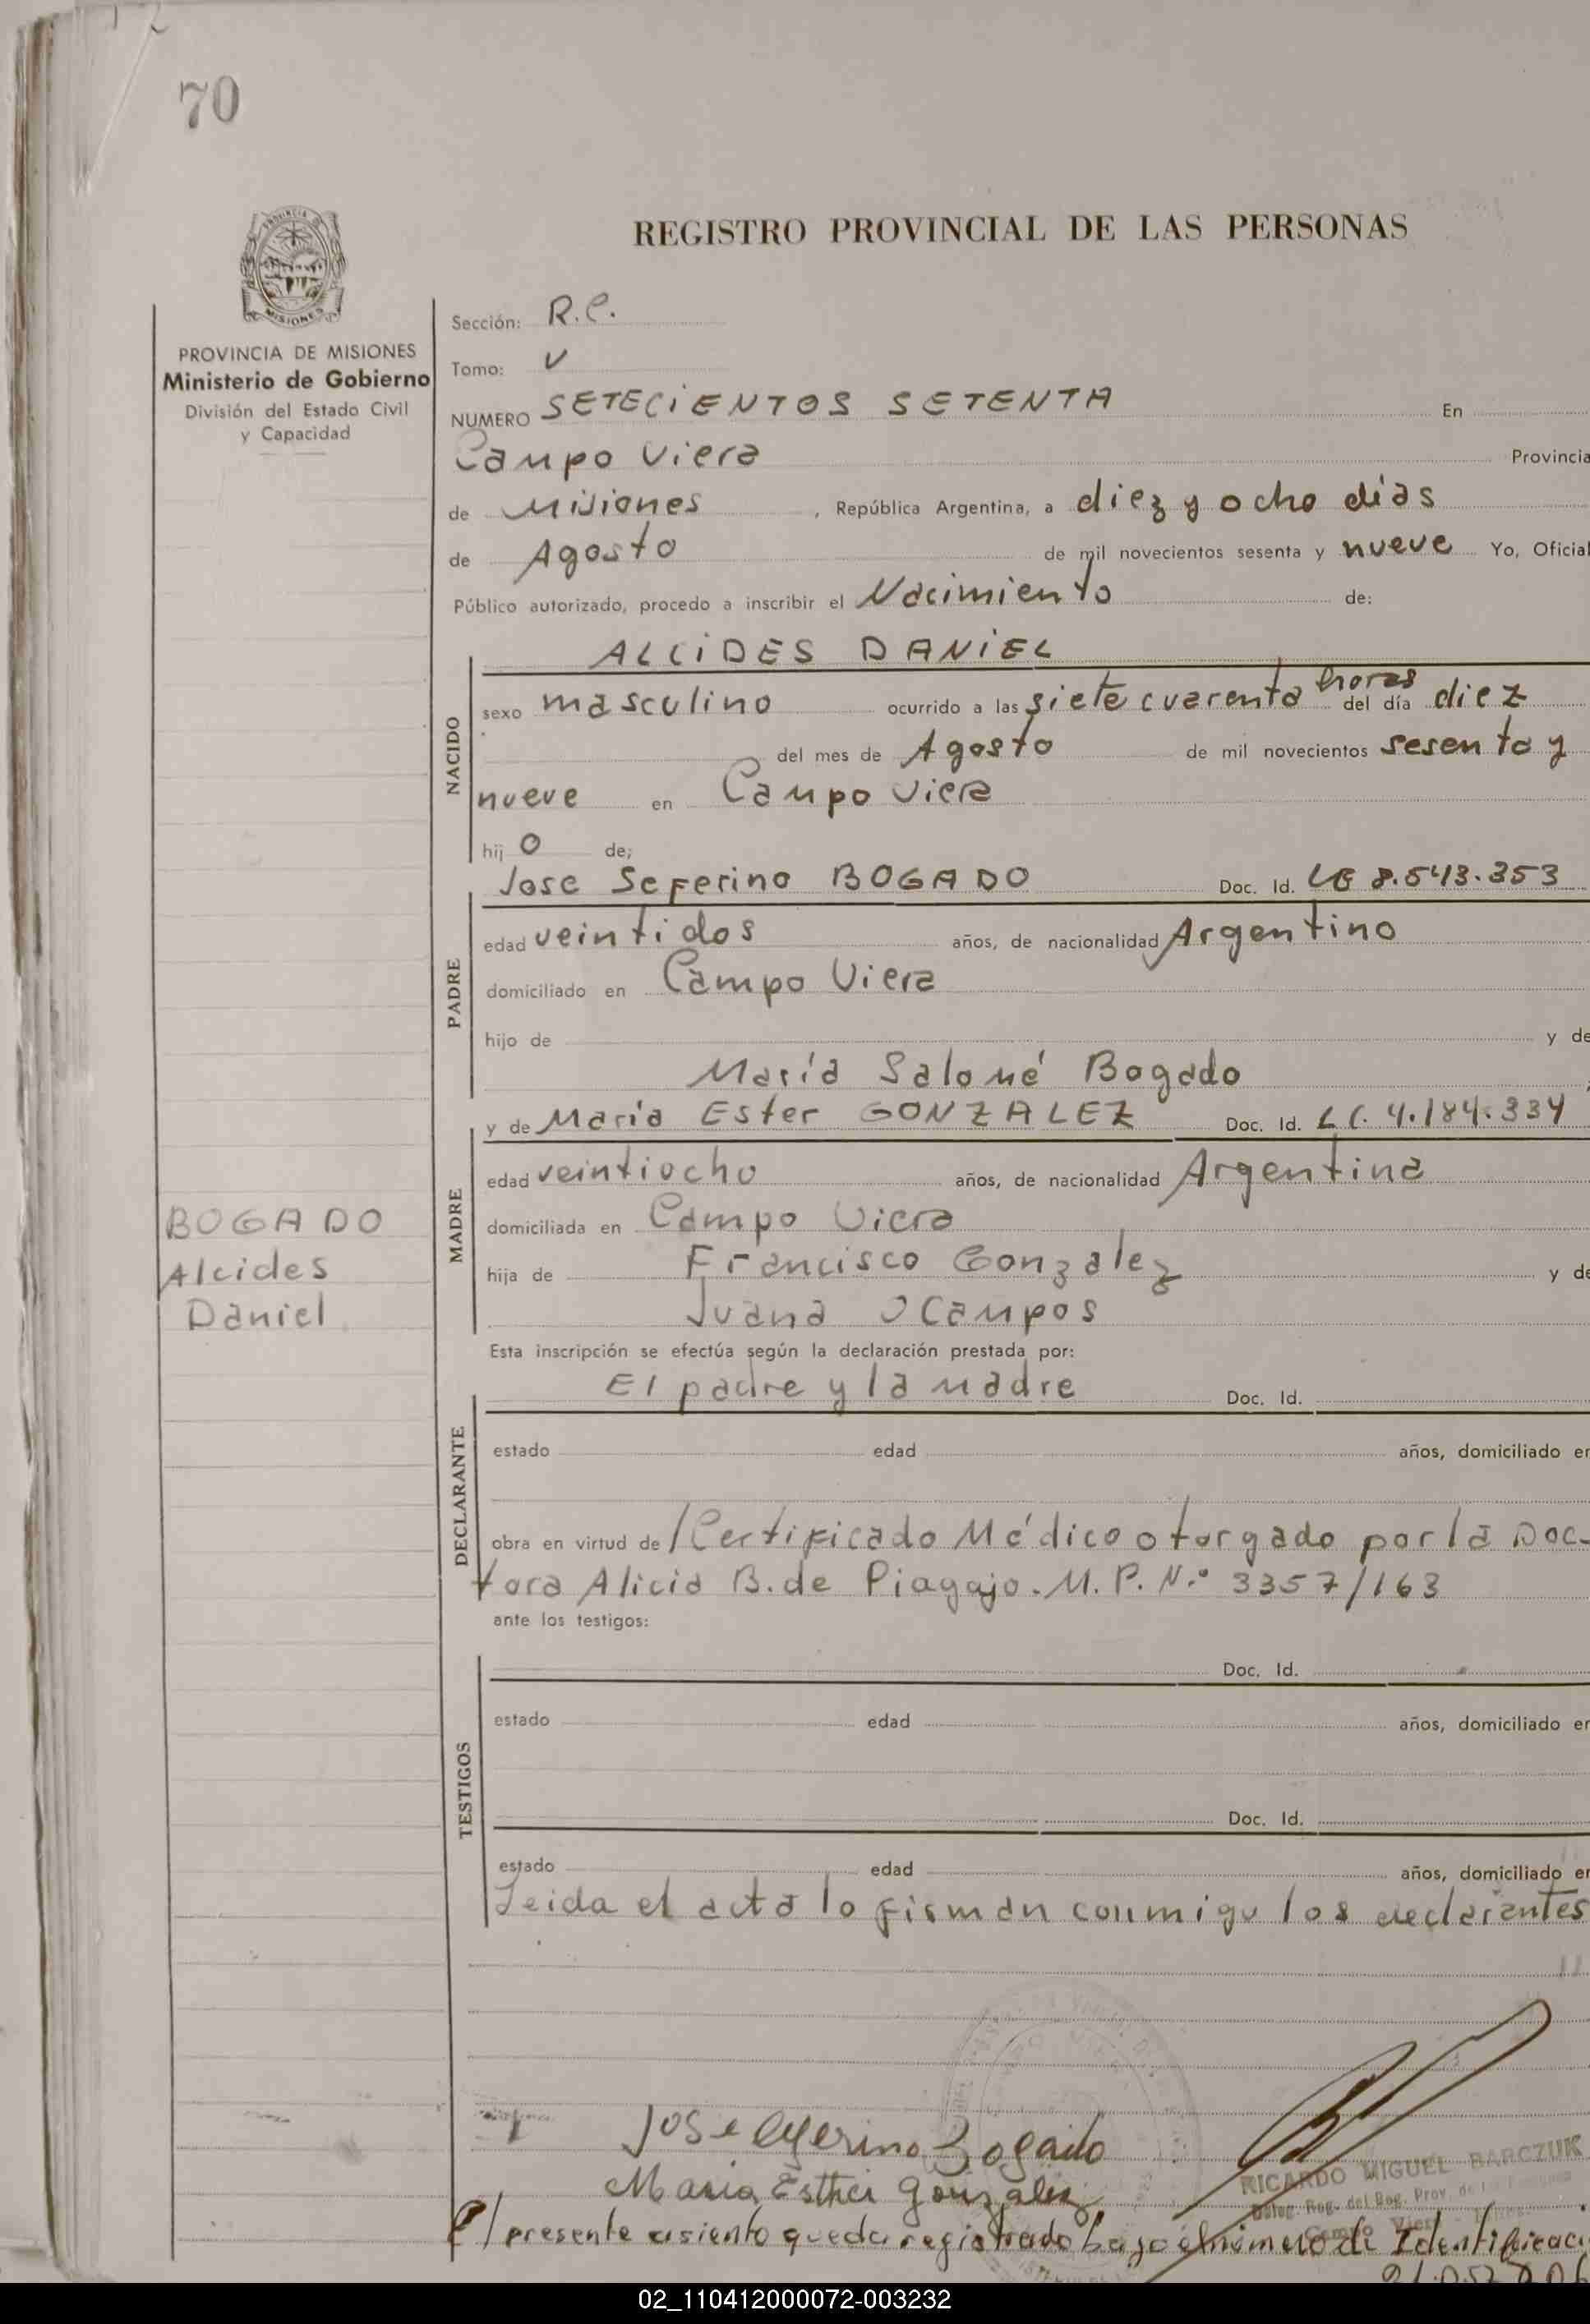 70
REGISTRO PROVINCIAL DE LAS PERSONAS
MISIONES
PROVINCIA DE MISIONES
Ministerio de Gobierno
División del Estado Civil
y Capacidad
Sección: R.C.
Tomo: V
NUMERO SETECIENTOS SETENTA En
Campo Viera Provincia
de Misiones, República Argentina, a diez y ocho días
de Agosto de mil novecientos sesenta y nueve Yo, Oficial
Público autorizado, procedo a inscribir el Nacimiento de:
ALCIDES DANIEL
NACIDO
sexo masculino ocurrido a las siete cuarenta horas del día diez
del mes de Agosto de mil novecientos sesenta y
nueve en Campo Viera
hijo de;
Jose Seferino BOGADO Doc. Id. LE 8.543.353
PADRE
edad veintidos años, de nacionalidad Argentino
domiciliado en Campo Viera
hijo de y de
María Salomé Bogado
y de María Ester GONZALEZ Doc. Id. LC. 4.184.334
MADRE
edad veintiocho años, de nacionalidad Argentina
domiciliada en Campo Viera
hija de Francisco Gonzalez y de
Juana Ocampos
BOGADO
Alcides
Daniel
Esta inscripción se efectúa según la declaración prestada por:
El padre y la madre Doc. Id.
DECLARANTE
estado edad años, domiciliado en
obra en virtud de /Certificado Médico otorgado por la Doc-
tora Alicia B. de Piagajo. M. P. N.º 3357/163
ante los testigos:
Doc. Id.
TESTIGOS
estado edad años, domiciliado en
Doc. Id.
estado edad años, domiciliado en
Leida el acta lo firman conmigo los declarantes
Jose Bogado
Maria Esther Gonzalez
RICARDO MIGUEL BARCZUK
Deleg. Reg. del Reg. Prov. de
Campo Viera
El presente asiento queda registrado bajo el número de Identificaci
02_110412000072-003232